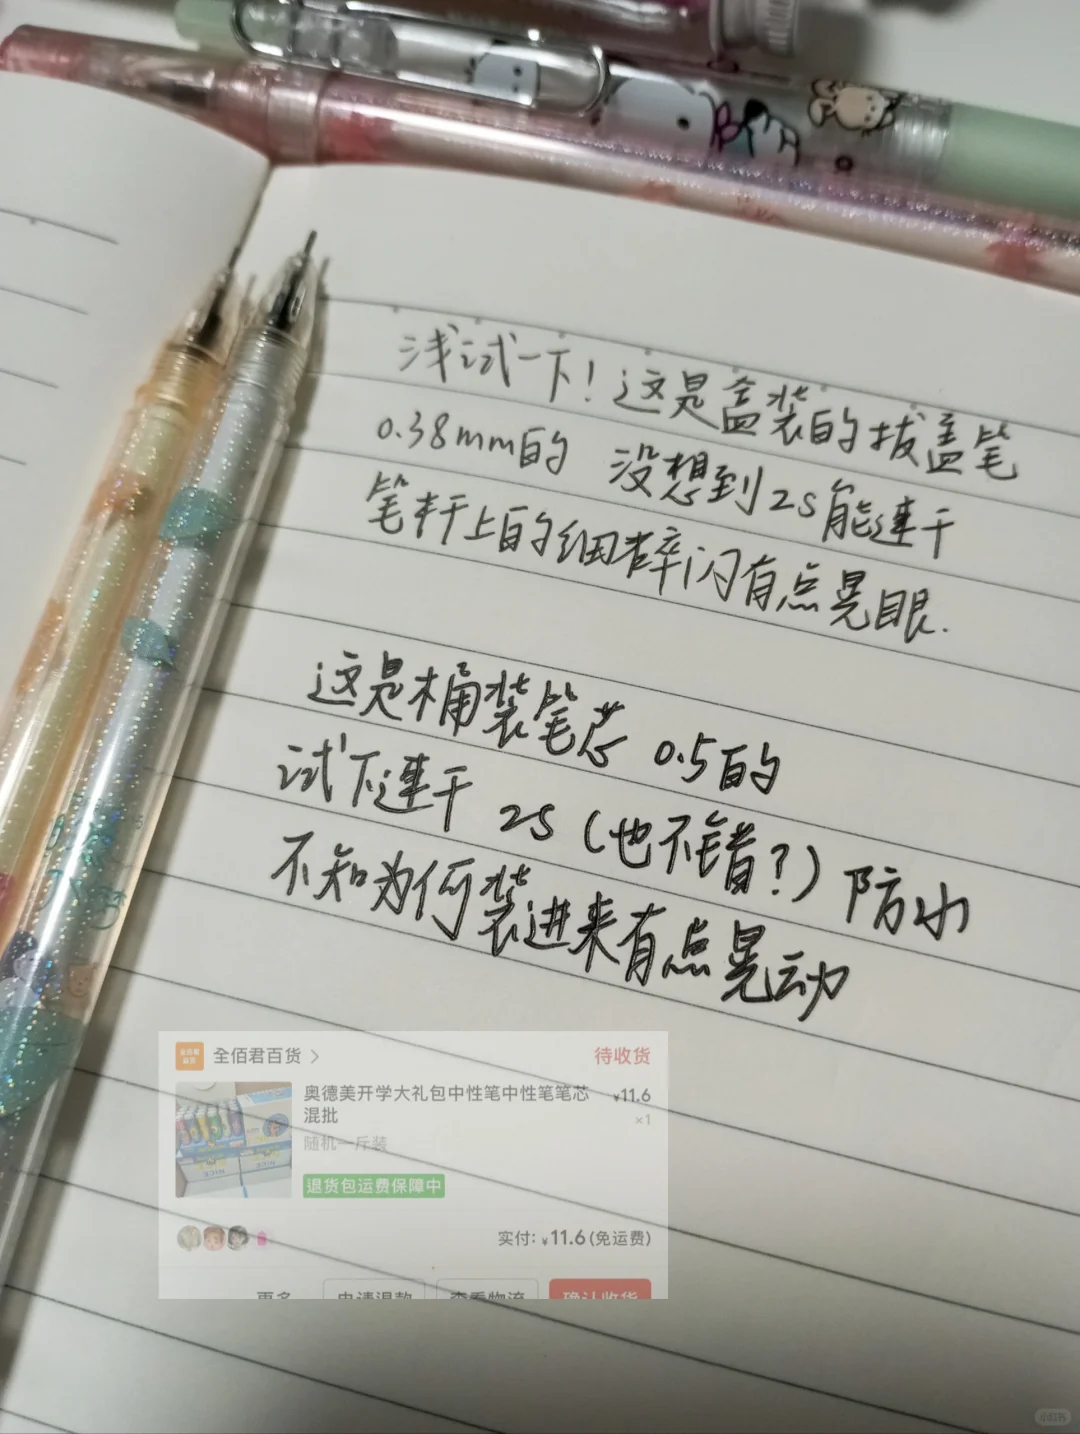 浅试一下！这是盒装的拔盖笔
0.38mm的 没想到2S能速干
笔杆上的细碎闪有点晃眼.
这是桶装笔芯 0.5的
试下速干 2S（也不错？）防水
不知为何装进来有点晃动
全佰君百货 >
待收货
奥德美开学大礼包中性笔中性笔笔芯
混批
¥11.6
×1
随机一斤装
退货包运费保障中
实付: ¥11.6(免运费)
更多
申请退款
查看物流
确认收货
小红书